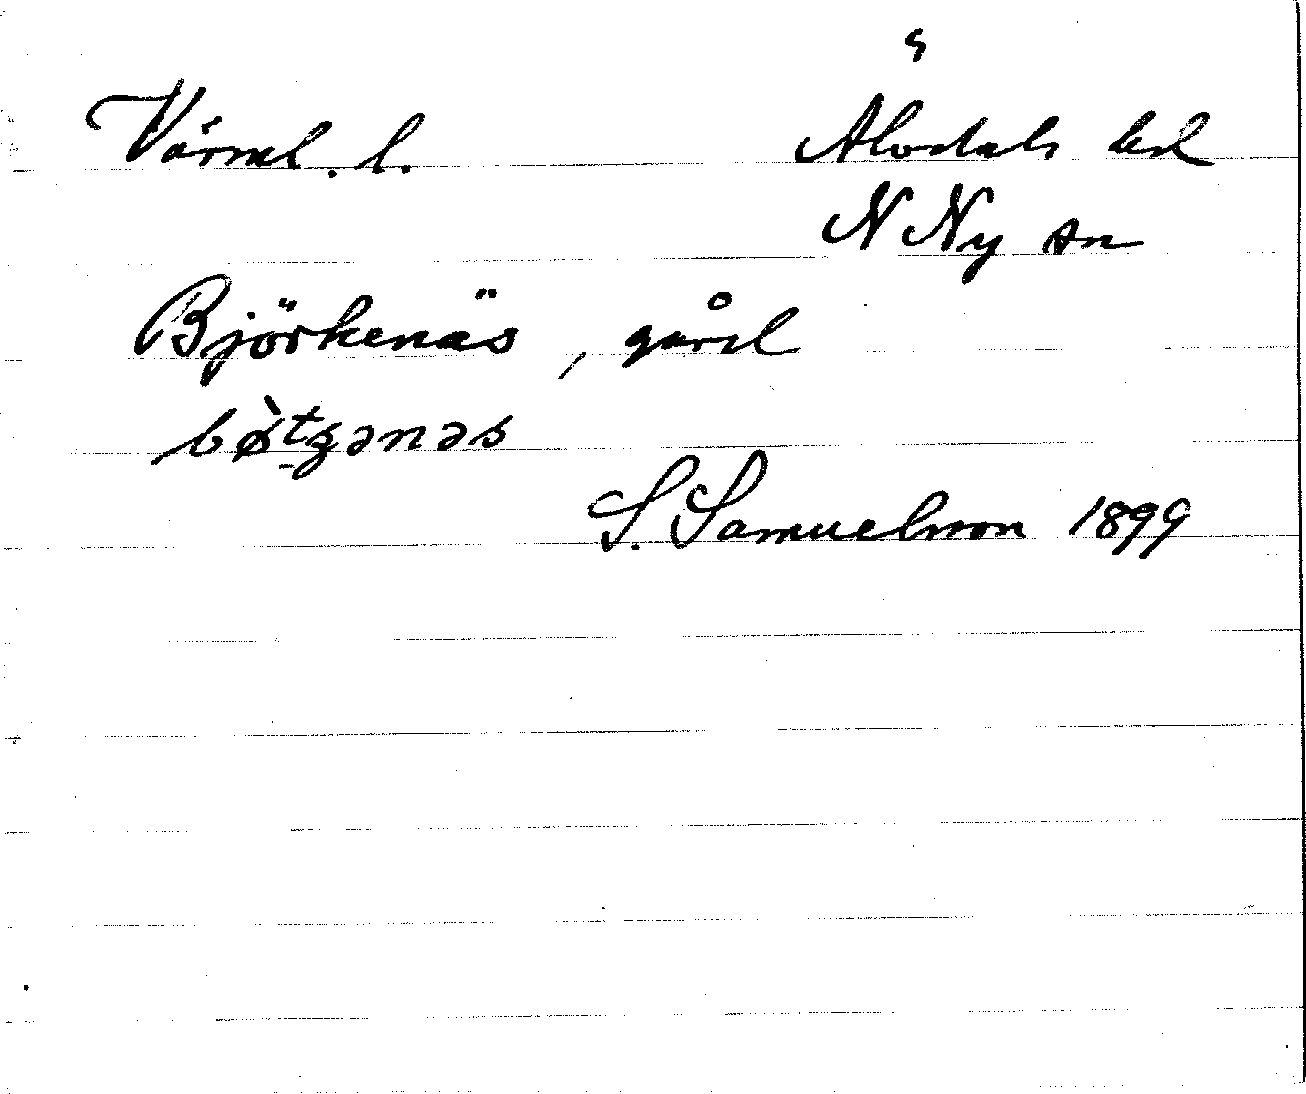 Värml. l. Älvdals hd
N Ny sn
Björkenäs, gård
bø̀tʒənəs
S. Samuelsson 1899